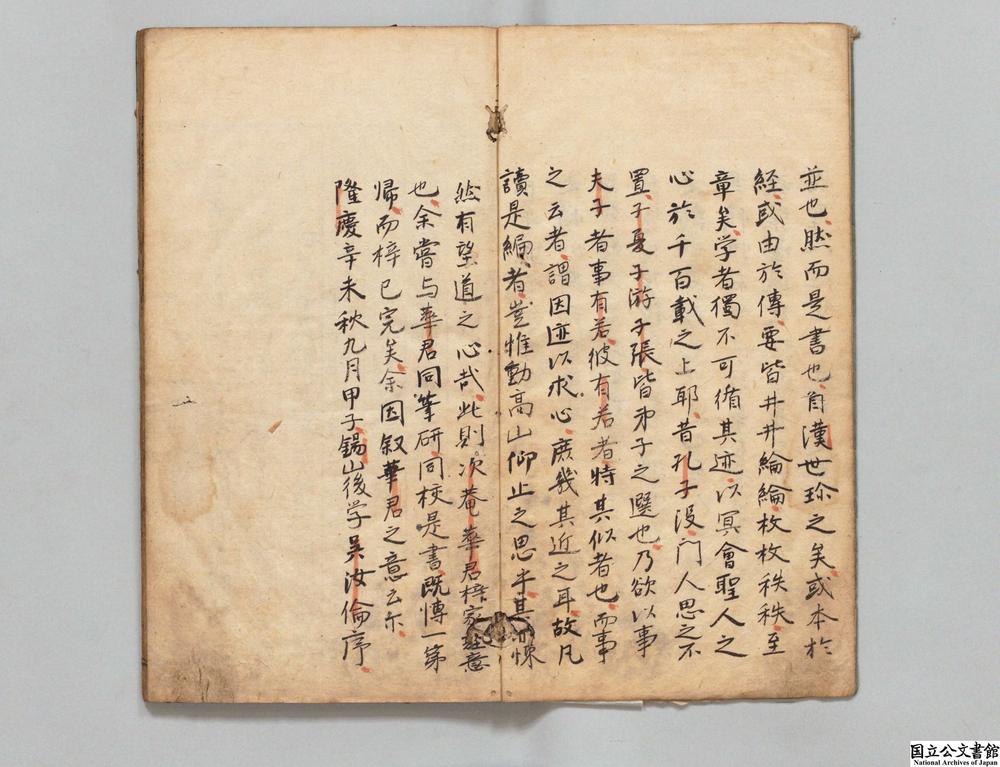 並也然而是書也自漢世珎之矣或本於
経或由於傳要皆井井綸綸枚枚秩秩至
章矣学者獨不可循其迹以冥會聖人之
心於千百載之上耶昔孔子没門人思之不
置子夏子游子張皆弟子之選也乃欲以事
夫子者事有若彼有若者特其似者也而事
之云者謂因迹以求心庶幾其近之耳故凡
讀是編者豈惟動高山仰止之思乎其亦悚
然有望道之心哉此則次菴華君梓家語意
也余嘗与華君同筆研同校是書既慱一第
帰而梓已完矣余因叙華君之意云尓
隆慶辛未秋九月甲子錫山後学吳汝倫序
国立公文書館
National Archives of Japan